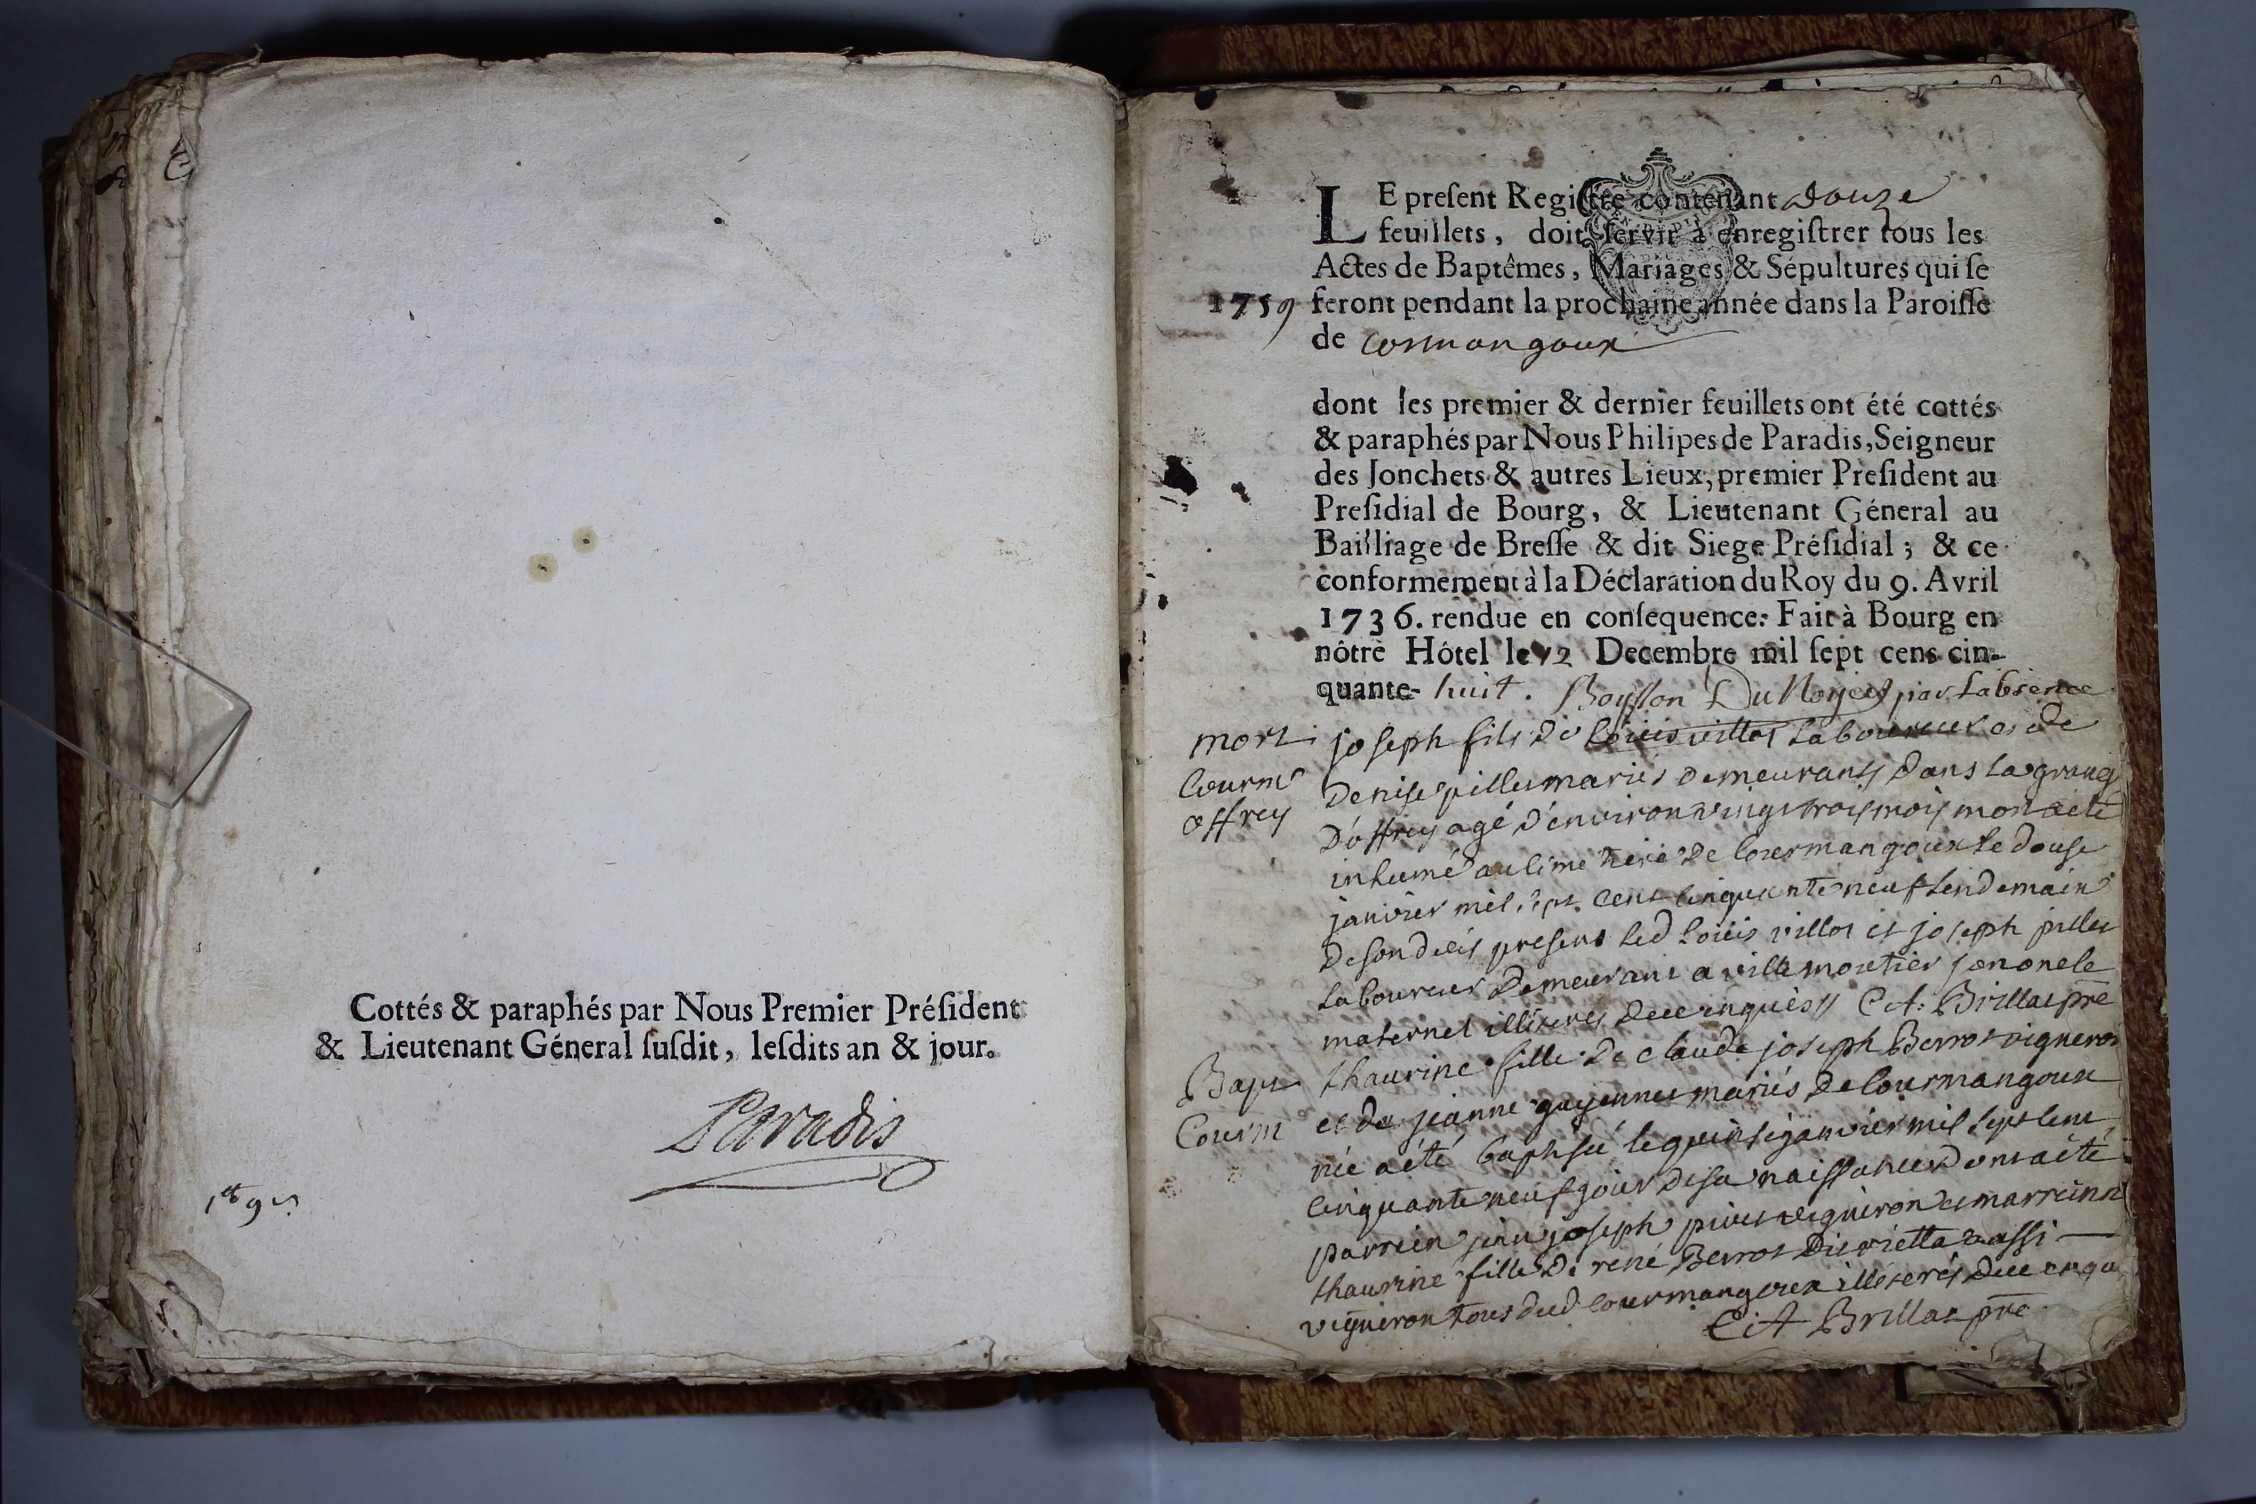 Cottés & paraphés par Nous Premier Préſident
& Lieutenant Géneral ſuſdit, leſdits an & jour.
Paradis
LE preſent Regiſtre contenant douze
feuillets, doit ſervir à enregiſtrer tous les
Actes de Baptêmes, Mariages & Sépultures qui ſe
1759 feront pendant la prochaine année dans la Paroiſſe
de cormangoux
dont les premier & dernier feuillets ont été cottés
& paraphés par Nous Philipes de Paradis, Seigneur
des Jonchets & autres Lieux, premier Preſident au
Preſidial de Bourg, & Lieutenant Géneral au
Bailliage de Breſſe & dit Siege Préſidial; & ce
conformement à la Déclaration du Roy du 9. Avril
1736. rendue en conſequence. Fait à Bourg en
nôtre Hôtel le 12 Decembre mil ſept cens cin-
quante- huit. par Labsence
mort
Courm
offrey
joseph fils de loüis villot laboureur et de
Denise pillet mariés demeurants dans la grang
D'offrey agé d'environ vingt trois mois mort a eté
inhumé au cimetiere de courmangoux le douse
janvier mil sept cent cinquante neuf lendemain
de son décés presens led loüis villot et joseph pillet
laboureur demeurant a villemoutier son oncle
maternel illiterés de ce enquis // C A. Brillat pre
Bapt
Courm
thaurine fille de claude joseph Berrot vigneron
et de jeanne guyennet mariés de courmangoux
née a été baptisé le quinse janvier mil sept cent
cinquante neuf jour de sa naissance dont a été
parrein jean joseph vigneron et marreinne
thaurine fille de rené Berrot aussi
vigneron tous dud courmangoux illiterés de ce enqu
C A Brillat pre